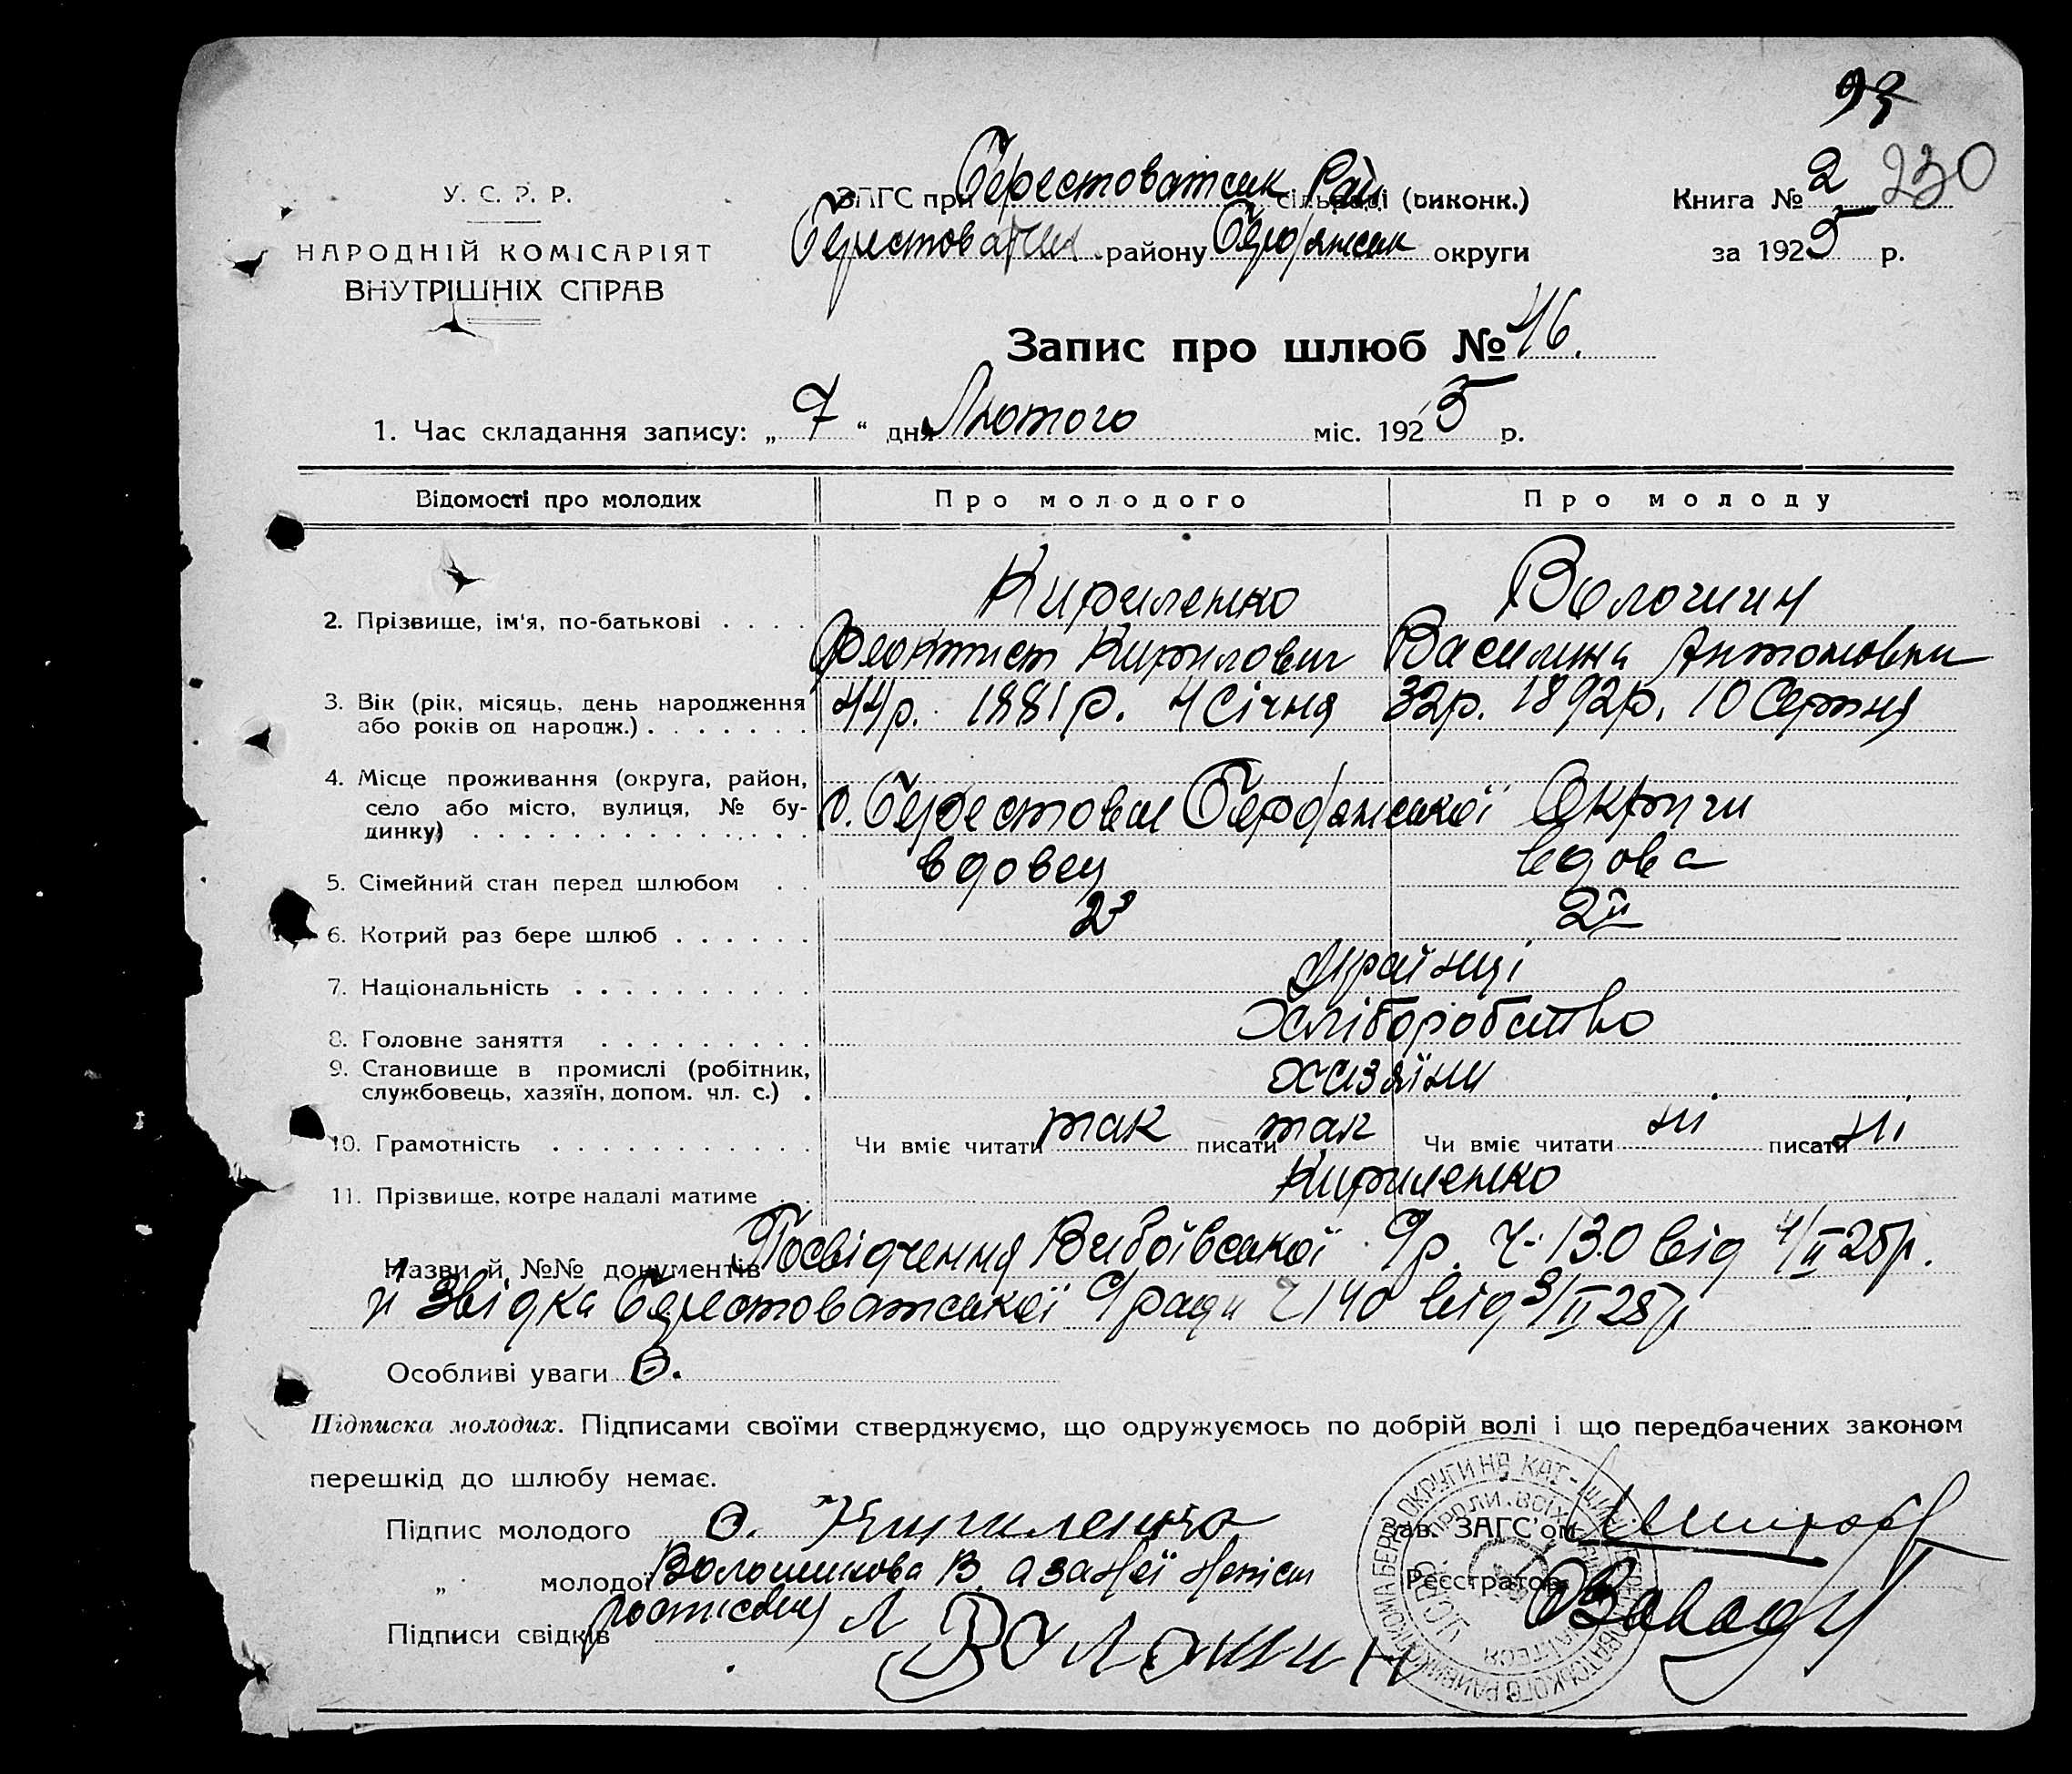 93
У. С. Р. Р.
НАРОДНІЙ КОМІСАРІЯТ
ВНУТРІШНІХ СПРАВ
ЗАГС при Берестоватськ Рай. сільраді (виконк.)
Берестоватськ району Бердянськ округи
Книга № 2 230
за 1925 р.
Запис про шлюб № 46.
1. Час складання запису: „ 7 “ дня Лютого міс. 1925 р.
Відомості про молодих Про молодого Про молоду
Кириленко Волошин
2. Прізвище, ім'я, по-батькові . . . . Феоктист Кирилович Василина Антоновна
3. Вік (рік, місяць, день народження 44р. 1881р. 4 Січня 32р. 1892р. 10 Серпня
або років од народж.) . . . . . . .
4. Місце проживання (округа, район,
село або місто, вулиця, № бу- с. Берестовеє Бердянської Округи
динку) . . . . . . . . . . . . . .
5. Сімейний стан перед шлюбом . . вдовец вдова
6. Котрий раз бере шлюб . . . . . . 2й 2й
7. Національність . . . . . . . . . . українці
8. Головне заняття . . . . . . . . . хліборобство
9. Становище в промислі (робітник, хазяїни
службовець, хазяїн, допом. чл. с.) .
10. Грамотність . . . . . . . . . . . Чи вміє читати так писати так Чи вміє читати ні писати ні
11. Прізвище, котре надалі матиме . . Кириленко
Назви й №№ документів Посвідчення С/р. Ч. 130 від 4/II 25р.
й Звідка Берестоватської С/ради Ч 140 від 3/II 25р
Особливі уваги О.
Підписка молодих. Підписами своїми стверджуємо, що одружуємось по добрій волі і що передбачених законом
перешкід до шлюбу немає.
Підпис молодого Ф. Кириленко
„ молодої Волошинова В. а за неї
Підписи свідків Волошин
Зав. ЗАГС'ом
Реєстратор